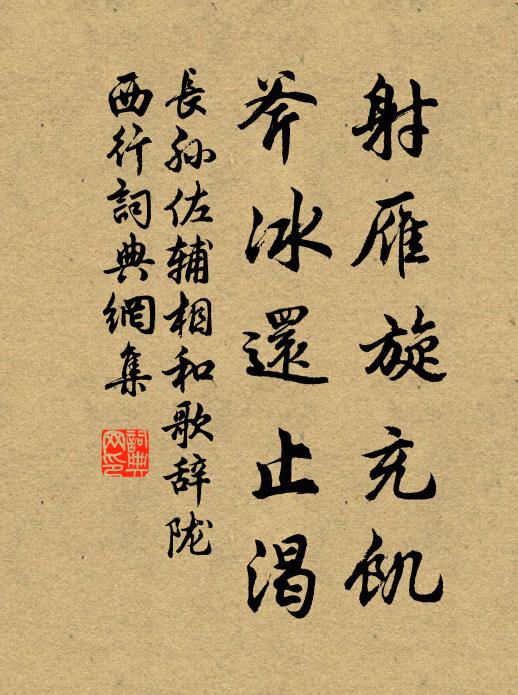 射雁旋充飢
斧冰還止渴
長孙佐辅相和歌辞陇
西行詞典網集
詞典网印